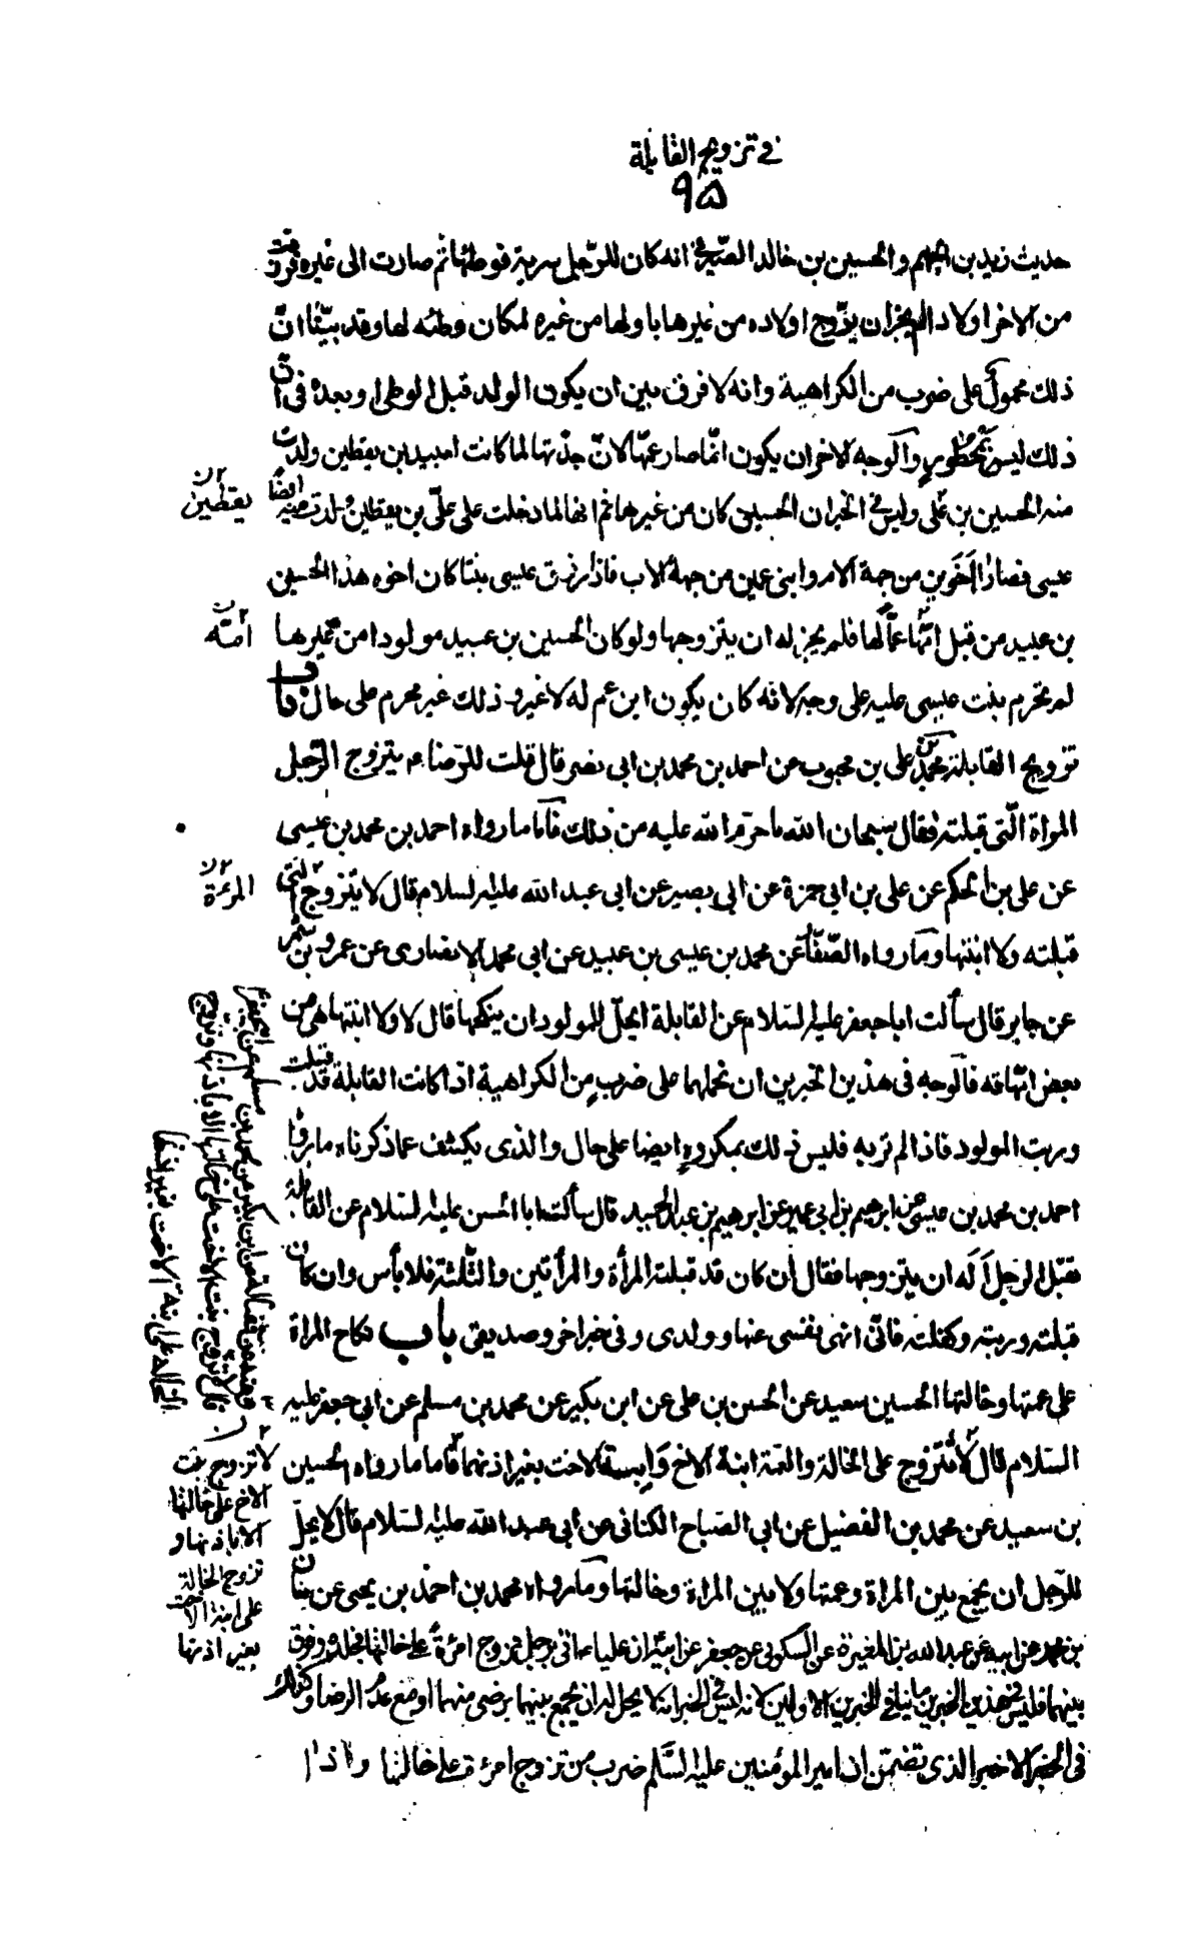 في تزويج القابلة
٩٥
حديث زيد بن الجهم والحسين بن خالد الصيرفي انه كان للرجل سرية فوطئها ثم صارت الى غيره فرزقت
من الاخر اولادا لم يجز ان يزوج اولاده من غيرها باولادها من غيره لمكان وطئه لها وقد بيّنّا انّ
ذلك محمول على ضرب من الكراهية وانه لا فرق بين ان يكون الولد قبل الوطى او بعده فى انّ
ذلك ليس بمحظور والوجه الاخر ان يكون انّما صار عمّها لانّ جدّتها لما كانت لعبيد بن يقطين ولدت
منه الحسين بن على وليس في الخبر ان الحسين كان من غيرها ثم انها لما دخلت على علىّ بن يقطين ولدت منه ايضا
عيسى فصارا اخوين من جهة الام وابنى عمين من جهة الاب فاذا رزق عيسى بنتا كان اخوه هذا الحسين
بن عبيد من قبل انها عمّا لها فلم يجز له ان يتزوجها ولو كان الحسين بن عبيد مولودا من غيرها
لم تحرم بنت عيسى عليه على وجه لانه كان يكون ابن عم له لا غير وذلك غير محرم على حال
تزويج القابلة محمد بن على بن محبوب عن احمد بن محمد بن ابى نصر قال قلت للرضا يتزوج الرّجل
المراة الّتى قبلته فقال سبحان الله ما حرّم الله عليه من ذلك فاما ما رواه احمد بن محمد بن عيسى
عن على بن الحكم عن على بن ابى حمزة عن ابى بصير عن ابى عبد الله عليه السلام قال لا يتزوج التى
قبلته ولا ابنتها وما رواه الصّفّار عن محمد بن عيسى بن عبيد عن ابى محمد الانصارى عن عمرو بن شمر
عن جابر قال سألت ابا جعفر عليه السّلام عن القابلة ايحلّ للمولود ان ينكحها قال لا ولا ابنتها هى من
بعض امّهاته فالوجه فى هذين الخبرين ان نحملهما على ضرب من الكراهية اذا كانت القابلة قد قبلت
وربت المولود فاذا لم تربه فليس ذلك بمكروه ايضا على حال والذى يكشف عما ذكرناه ما رواه
احمد بن محمد بن عيسى عن ابرهيم بن ابى عمير عن ابرهيم بن عبد الحميد قال سألت ابا الحسن عليه السّلام عن القابلة
تقبّل الرجل اَله ان يتزوجها فقال ان كان قد قبلته المرأة والمرأتين والثّلثة فلا بأس وان كان
قبلته وربته وكفلته فانّى انهى نفسى عنها وولدى وفى خبر اخر وصديقى باب نكاح المراة
على عمتها وخالتها الحسين سعيد عن الحسن بن على عن ابن بكير عن محمد بن مسلم عن ابى جعفر عليه
السّلام قال لا تتزوج على الخالة والعمة ابنة الاخ وابنة الاخت بغير اذنهما فاما ما رواه الحسين
بن سعيد عن محمد بن الفضيل عن ابى الصّباح الكنانى عن ابى عبد الله عليه السّلام قال لا يحلّ
للرّجل ان يجمع بين المراة وعمتها ولا بين المراة وخالتها وما رواه محمد بن احمد بن يحيى عن بنان
بن محمد عن ابيه عن عبد الله بن المغيرة عن السكونى عن جعفر عن ابيه ان عليا اتى برجل تزوج امرءة على خالتها فجلده وفرق
بينهما فليس فى هذين الخبرين ما ينافى الخبرين الاولين لانه ليس فى الخبر انه لا يحل له ان يجمع بينهما برضى منهما او مع عدم الرضا وكذلك
فى الخبر الاخير الذى تضمّن ان امير المؤمنين عليه السّلم ضرب من تزوج امرءة على خالتها واذا
يقطين
امّه
المرءة
لا تزوج بنت
الاخ على خالتها
الا باذنها و
تزوج الخالة
على ابنة الاخت
بغير اذنها